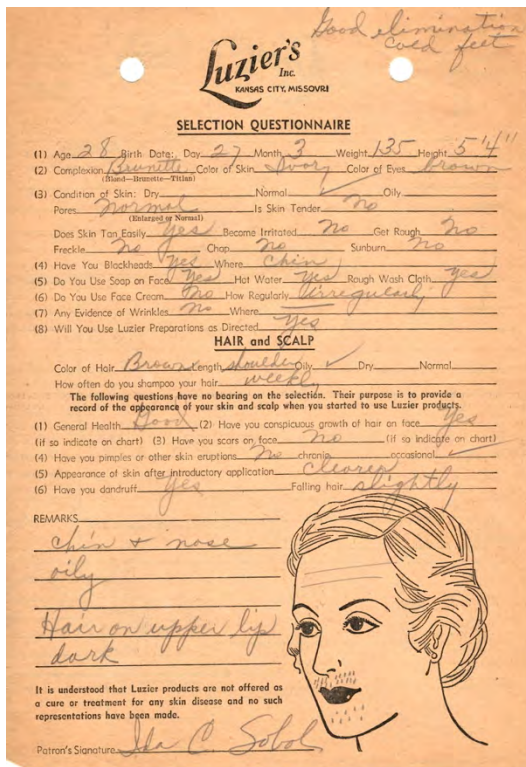 Good elimination
cold feet
Luzier's
Inc.
KANSAS CITY, MISSOURI
SELECTION QUESTIONNAIRE
(1) Age 28 Birth Date: Day 27 Month 3 Weight 135 Height 5'4"
(2) Complexion Brunette Color of Skin Ivory Color of Eyes brown
(Blond—Brunette—Titian)
(3) Condition of Skin: Dry Normal ✓ Oily
Pores normal Is Skin Tender No
(Enlarged or Normal)
Does Skin Tan Easily yes Become Irritated No Get Rough No
Freckle No Chap No Sunburn No
(4) Have You Blackheads yes Where chin
(5) Do You Use Soap on Face Yes Hot Water yes Rough Wash Cloth yes
(6) Do You Use Face Cream No How Regularly Irregularly
(7) Any Evidence of Wrinkles No Where
(8) Will You Use Luzier Preparations as Directed yes
HAIR and SCALP
Color of Hair Brown Length shoulder Oily ✓ Dry Normal
How often do you shampoo your hair weekly
The following questions have no bearing on the selection. Their purpose is to provide a
record of the appearance of your skin and scalp when you started to use Luzier products.
(1) General Health Good (2) Have you conspicuous growth of hair on face yes
(if so indicate on chart) (3) Have you scars on face no (if so indicate on chart)
(4) Have you pimples or other skin eruptions No chronic occasional ✓
(5) Appearance of skin after introductory application clearer
(6) Have you dandruff yes Falling hair slightly
REMARKS
chin + nose
oily
Hair on upper lip
dark
It is understood that Luzier products are not offered as
a cure or treatment for any skin disease and no such
representations have been made.
Patron's Signature Ida C. Sobol